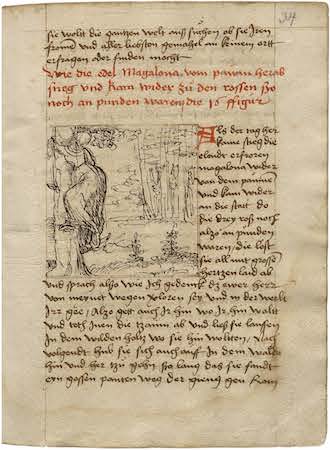 34
sie wolt die gantzen welt auß suchen ob sie Jren
frome und aller liebsten gemahel an keinem ortt
erfragen oder finden mocht
Wie die edel Magalona vom pawm herab
stieg und kam wider zu den rossen so
noch an punden waren die 18 ffigur
Als der tag her
kame stieg die
ellendt
magalona wider
von dem paumen
und kam wider
an die statt do
die drey roß noch
also an punden
waren / die löst
sie all mit grossem
hertzen laid ab
und sprach also wie ich gedenck dz ewer herr
von meynet wegen verloren sey und in der werlt
Irr gee / Also gett auch Jr hin wo Jr hin wölt
und teth Jnen die tzaum ab und ließ sie lauffen
In dem wilden holtz wo sie hin wolten / Nach
volgendt hub sie sich auch auf In dem walde
hin und her zu gehn so lang das sie fandt
ein grossen panten weg der gieng gen Rom